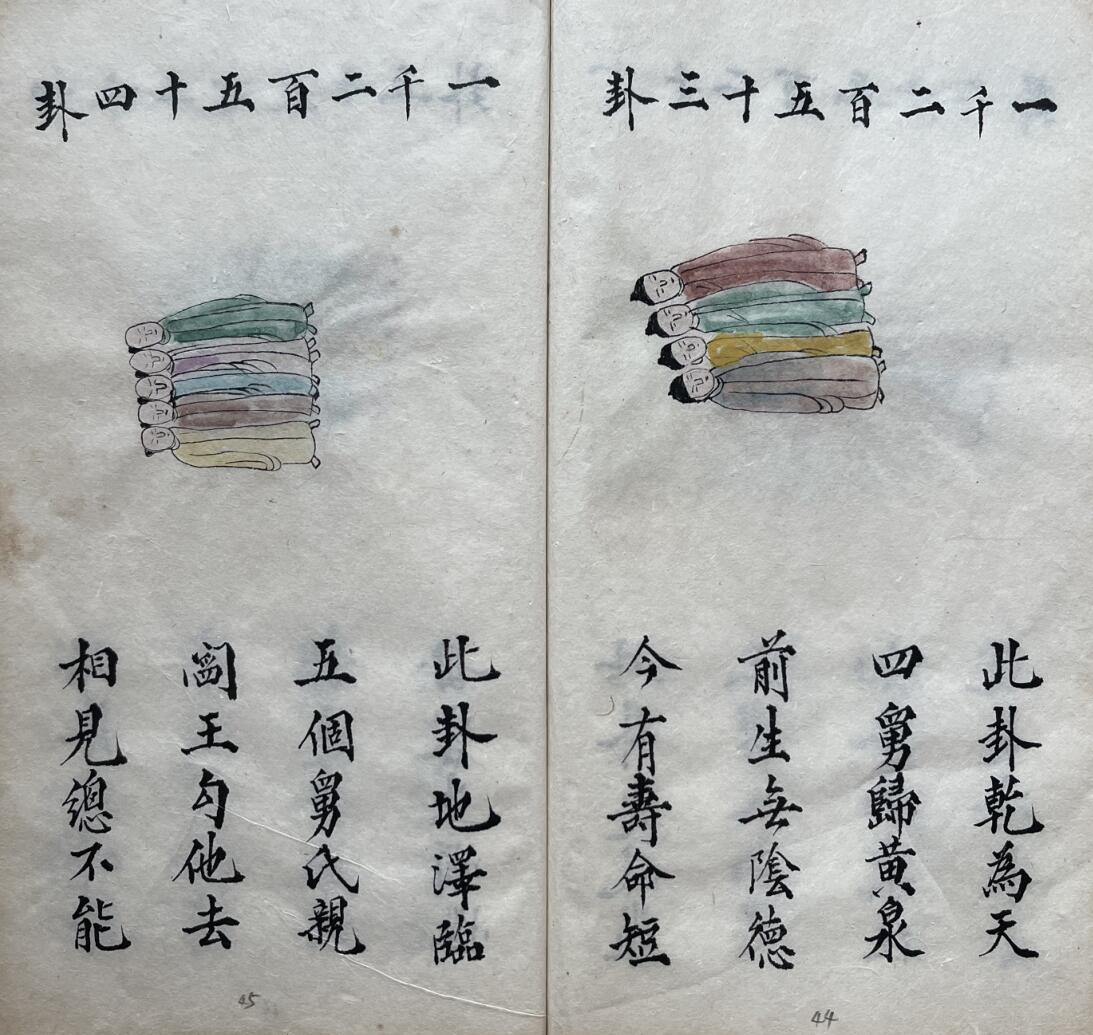 一千二百五十三卦
此卦乾為天
四舅歸黃泉
前生無陰德
今有壽命短
44
一千二百五十四卦
此卦地澤臨
五個舅氏親
閻王勾他去
相見總不能
45